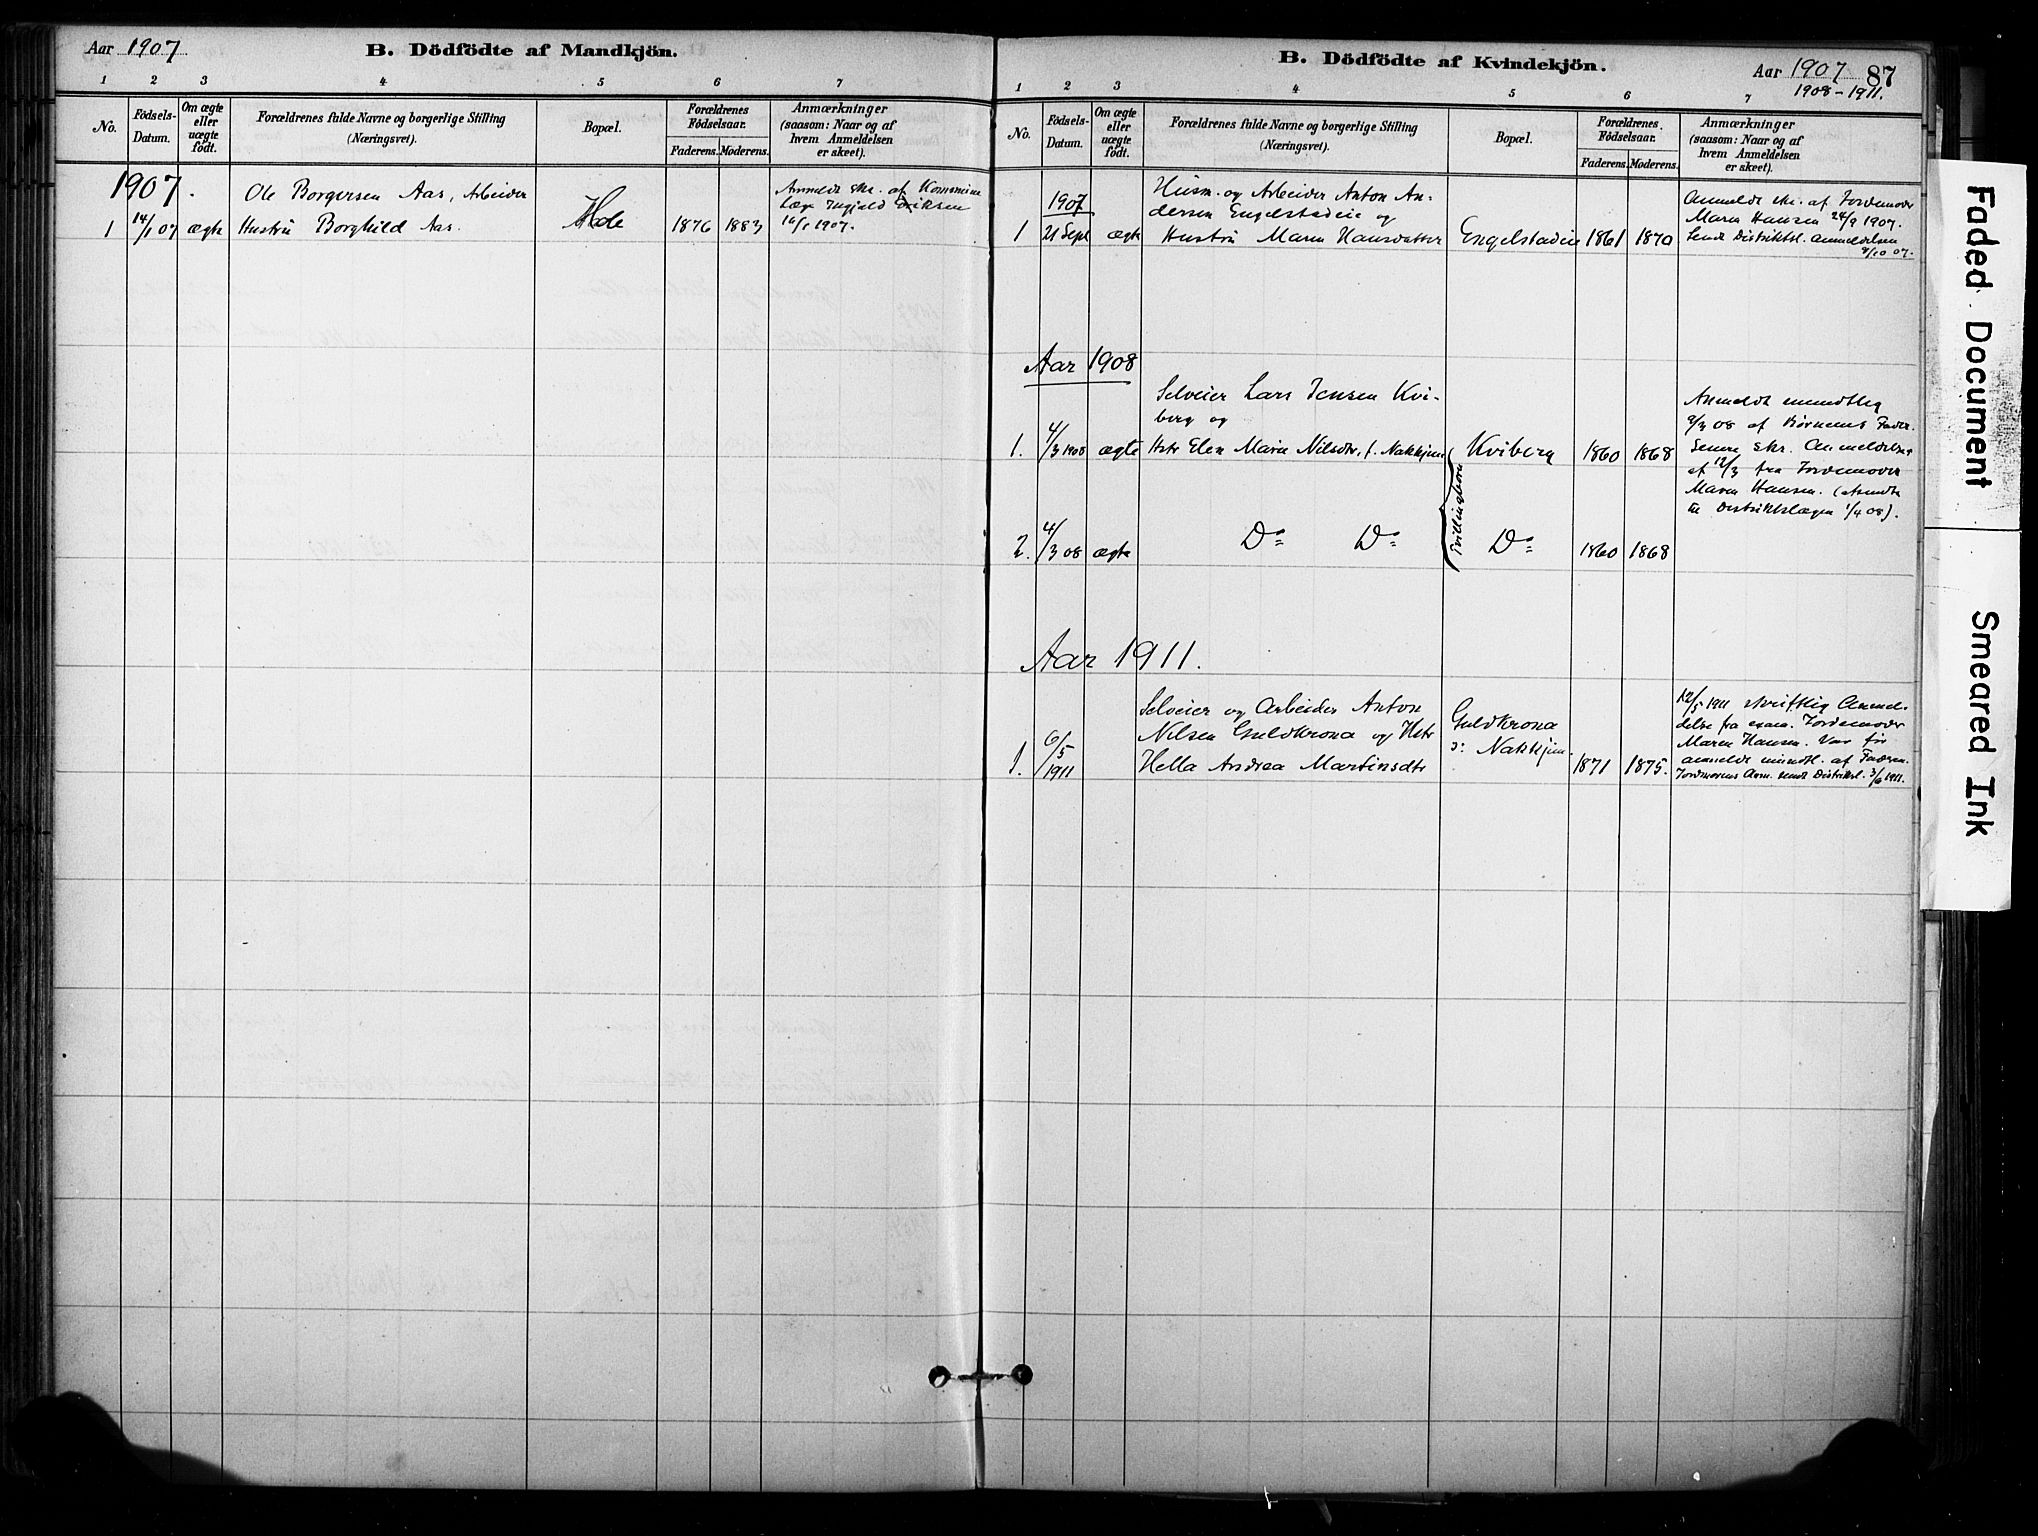 Aar 1907
B. Dödfödte af Mandkjön.
1 2 3 4 5 6 7
No.
Födsels-
Datum.
Om ægte
eller
uægte
födt.
Forældrenes fulde Navne og borgerlige Stilling
(Næringsvei).
Bopæl.
Forældrenes
Födselsaar.
Faderens. Moderens.
Anmærkninger
(saasom: Naar og af
hvem Anmeldelsen
er skeet).
1907.
Ole Borgersen Aas, Arbeider
Anmeldt skr. af Kommune
Læge Ingjald Eriksen
1 14/1 07 ægte Hustru Borghild Aas. Hole 1876 1883 16/1 1907.
B. Dödfödte af Kvindekjön.
Aar 1907 87
1908-1911.
1 2 3 4 5 6 7
No.
Födsels-
Datum.
Om ægte
eller
uægte
födt.
Forældrenes fulde Navne og borgerlige Stilling
(Næringsvei).
Bopæl.
Forældrenes
Födselsaar.
Faderens. Moderens.
Anmærkninger
(saasom: Naar og af
hvem Anmeldelsen
er skeet).
1907
Husm. og Arbeider Anton An-
dersen Engelstadeie og
1 21 Sept ægte Hustru Maren Hansdatter Engelstadeie 1861 1870
Anmeldt skr. af Jordemoder
Maren Hansen 24/9 1907.
Sendt Distriktsl. Anmeldelsen
8/10 07.
Aar 1908
Selveier Lars Jensen Kvi-
berg og
1. 4/3 1908 ægte Hstr Elen Marie Nilsdtr. f. Nakkjem Kviberg 1860 1868
Anmeldt mundtlig
9/3 08 af Børnenes Fader.
Senere skr. Anmeldelse
af 12/3 fra Jordemoder
Maren Hansen. (afsendt
til Distriktslægen 1/4 08).
Tvillingbørn
2. 4/3 08 ægte Do Do Do 1860 1868
Aar 1911.
Selveier og Arbeider Anton
Nilsen Guldkrona og Hstr
Hella Andrea Martinsdtr
1. 6/5 1911
Guldkrona
o: Nakkjem.
1871 1875.
12/5 1911 skriftlig Anmel-
delse fra exam. Jordemoder
Maren Hansen. Var før
anmeldt mundtl. af Faderen.
Jordmorens Anm. sendt Distriktsl. 3/6 1911.
Faded Document
Smeared Ink